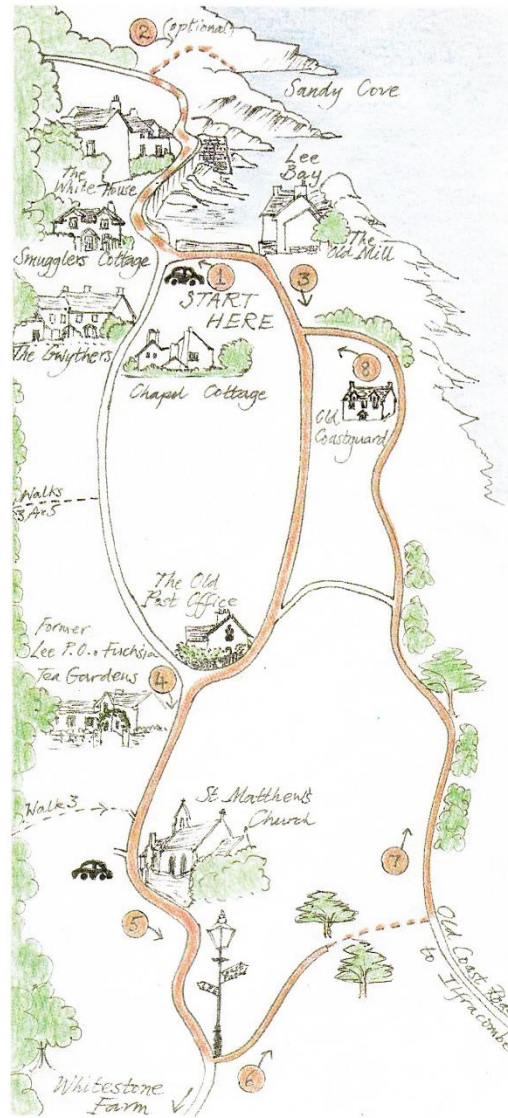 2 (optional)
Sandy Cove
Lee
Bay
The
White House
The
Old Mill
Smugglers Cottage
1
START
HERE
3
The Gwythers
Chapel Cottage
8
Old
Coastguard
Walks
3 A & 5
The Old
Post Office
Former
Lee P.O. & Fuchsia
Tea Gardens
4
Walk 3
St. Matthews
Church
7
5
Old Coast Road
to Ilfracombe
6
Whitestone
Farm